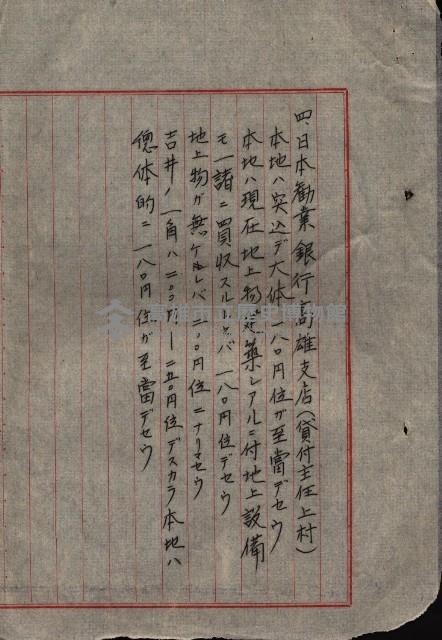 四、日本勧業銀行高雄支店(貸付主任上村)
本地ハ突込デ大体一八〇円位ガ至當デセウ
本地ハ現在地上物建築シアルニ付地上設備
モ一諸ニ買収スルトセバ一八〇円位デセウ
地上物ガ無ケレバ二〇〇円位ニナリマセウ
吉井ノ一角ハ二〇〇円―二五〇円位デスカラ本地ハ
偬体的ニ一八〇円位ガ至當デセウ
高雄市立歷史博物館